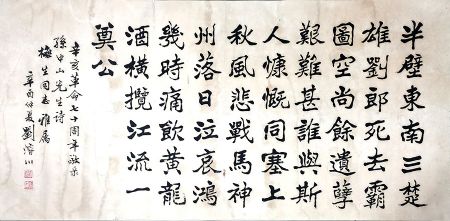 半壁東南三楚
雄劉郎死去霸
圖空尚餘遺孽
艱難甚誰與斯
人慷慨同塞上
秋風悲戰馬神
州落日泣哀鴻
幾時痛飲黃龍
酒橫攬江流一
奠公
辛亥革命七十周年敬录
孫中山先生詩
梅生同志雅属
辛酉仲夏劉